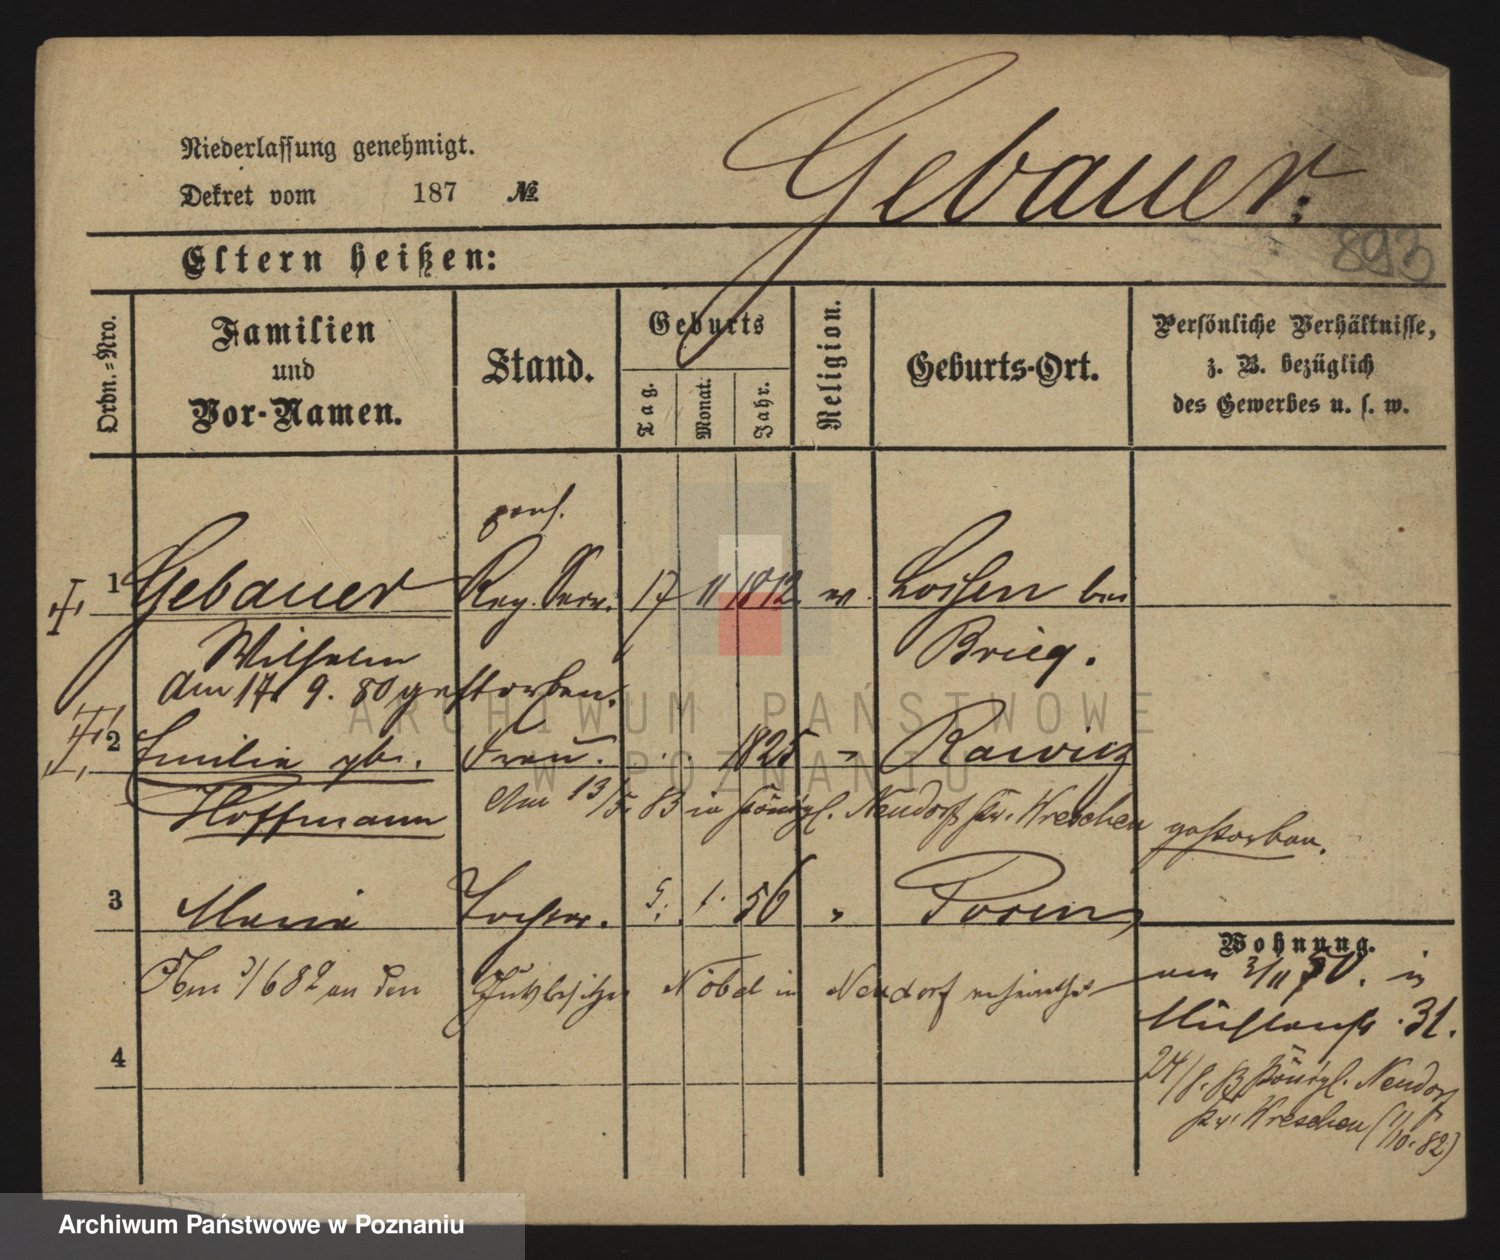 Niederlassung genehmigt.
Dekret vom 187 №
Gebauer.
893
Eltern heißen:
Ordn.-Nro.
Familien und Vor-Namen.
Stand.
Geburts
Tag.
Monat.
Jahr.
Religion.
Geburts-Ort.
Persönliche Verhältnisse,
z. B. bezüglich
des Gewerbes u. s. w.
pens.
1 Gebauer Reg. 17 11 1812 ev. Lossen bei
Wilhelm Brieg.
Am 17. 9. 80 gestorben.
2 Emilie gb. Frau. 1825 " Rawicz
Hoffmann Am 13/5. 83 in Königl. Neudorf Kr. Wreschen gestorben.
3 Maria Tochter. 5. 1. 56 " Posen
Am 3/6 82 an den Gutsbesitzer Nobel in Neudorf verheirathet
Wohnung.
3/11 70. in
Mühlenstr. 31.
24/8. 83 Königl. Neudorf
Kr. Wreschen (1/10. 82)
4
ARCHIWUM PAŃSTWOWE
W POZNANIU
Archiwum Państwowe w Poznaniu